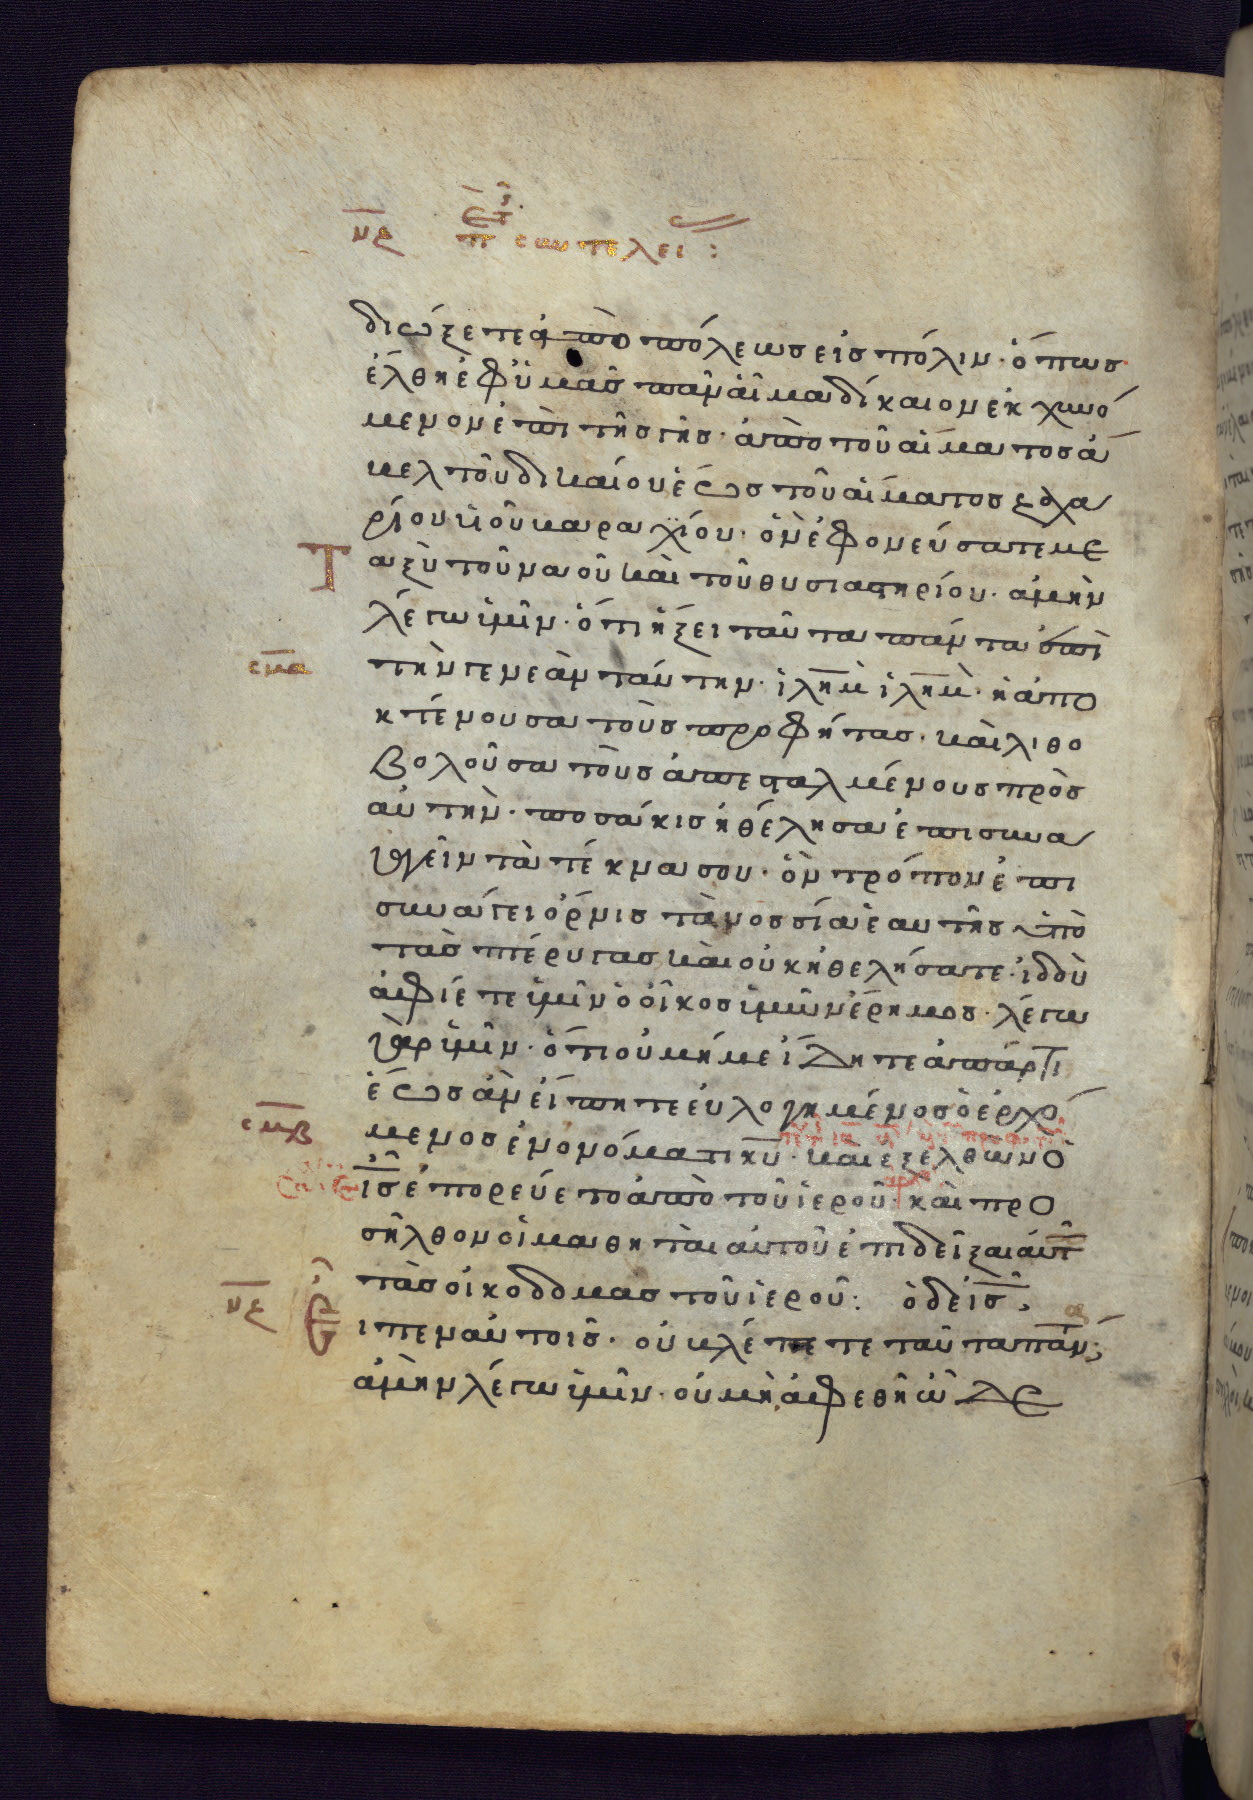 νζ π συντελεί :
διώξετε ἀπὸ πόλεως εἰς πόλιν· ὅπως
ἔλθη ἐφ ὑμᾶς πᾶν αἷμα δίκαιον ἐκχυνό
μενον ἐπὶ τῆς γῆς· ἀπὸ τοῦ αἵματος ἄ
βελ τοῦ δικαίου ἕως τοῦ αἵματος ζαχα
ρίου υἱοῦ βαραχίου· ὃν ἐφονεύσατε με
ταξὺ τοῦ ναοῦ καὶ τοῦ θυσιαστηρίου· ἀμὴν
λέγω ὑμῖν· ὅτι ἥξει ταῦτα πάντα ἐπὶ
σμα τὴν γενεὰν ταύτην· ἱλημ ἱλημ· ἡ ἀπο
κτένουσα τοὺς προφήτας· καὶ λιθο
βολοῦσα τοὺς ἀπεσταλμένους πρὸς
αὐτὴν· ποσάκις ἠθέλησα ἐπισυνα
γαγεῖν τὰ τέκνα σου· ὃν τρόπον ἐπι
συνάγει ὄρνις τὰ νοσσία ἑαυτῆς ὑπὸ
τὰς πτέρυγας καὶ οὐκ ἠθελήσατε· ἰδοὺ
ἀφίεται ὑμῖν ὁ οἶκος ὑμῶν ἔρημος· λέγω
γὰρ ὑμῖν· ὅτι οὐ μή με ἴδητε ἀπάρτι
ἕως ἂν εἴπητε εὐλογημένος ὁ ἐρχό
σμβ μενος ἐν ὀνόματι κυ· καὶ ἐξελθὼν ὁ
ις ἐπορεύετο ἀπὸ τοῦ ἱεροῦ· καὶ προ
σῆλθον οἱ μαθηταὶ αὐτοῦ ἐπιδεῖξαι αὐτ
τὰς οἰκοδομὰς τοῦ ἱεροῦ: ὁ δὲ ις
νζ εἶπεν αὐτοῖς· οὐ βλέπετε ταῦτα πάν;
ἀμὴν λέγω ὑμῖν· οὐ μὴ ἀφεθῆ ὧδε